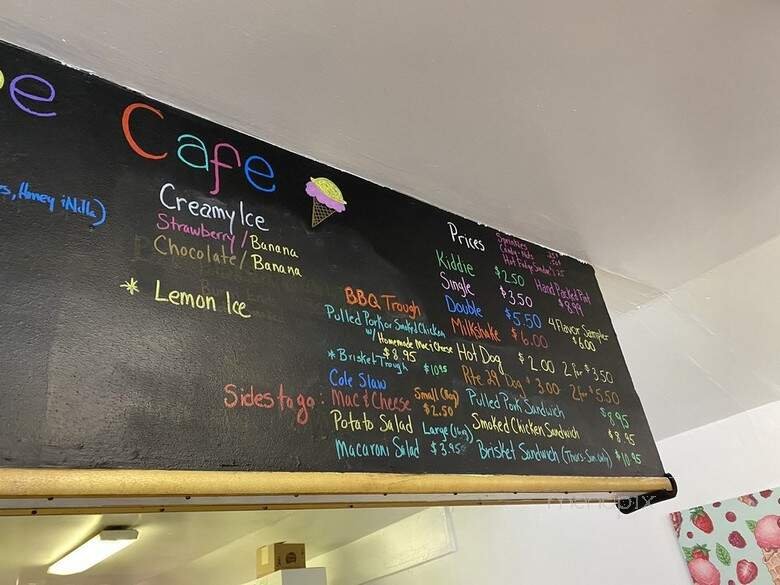 e Cafe
es, Honey iNilla)
Creamy Ice
Strawberry / Banana
Chocolate / Banana
* Lemon Ice
BBQ Trough
Pulled Pork or Smoked Chicken
w/ Homemade Mac i Cheese
$8.95
* Brisket Trough $10.95
Sides to go:
Cole Slaw
Mac & Cheese
Potato Salad
Macaroni Salad
Small (8oz)
$2.50
Large (16oz)
$3.95
Prices
Sprinkles .25
Kiddie $2.50
Single $3.50
Double $5.50
Milkshake $6.00
Hand Packed Pint
$8.99
4 Flavor Sampler
$6.00
Hot Dog $2.00 2 for $3.50
Rite 29 Dog $3.00 2 for $5.50
Pulled Pork Sandwich $8.95
Smoked Chicken Sandwich $8.95
Brisket Sandwich (Thurs-Sun only) $10.95
menupix